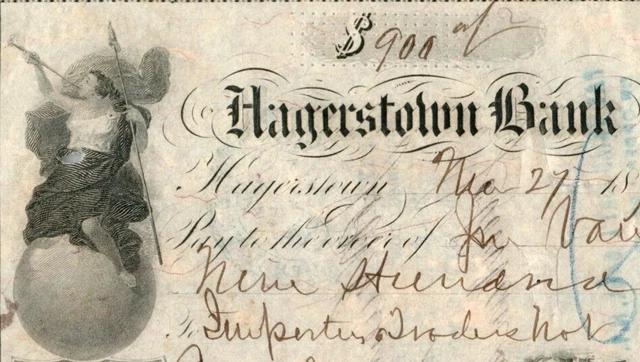 $ 900
Hagerstown Bank
Hagerstown Mar 27 18
Pay to the order of Jn Van
Nine Hundred
To Importers Traders Nat